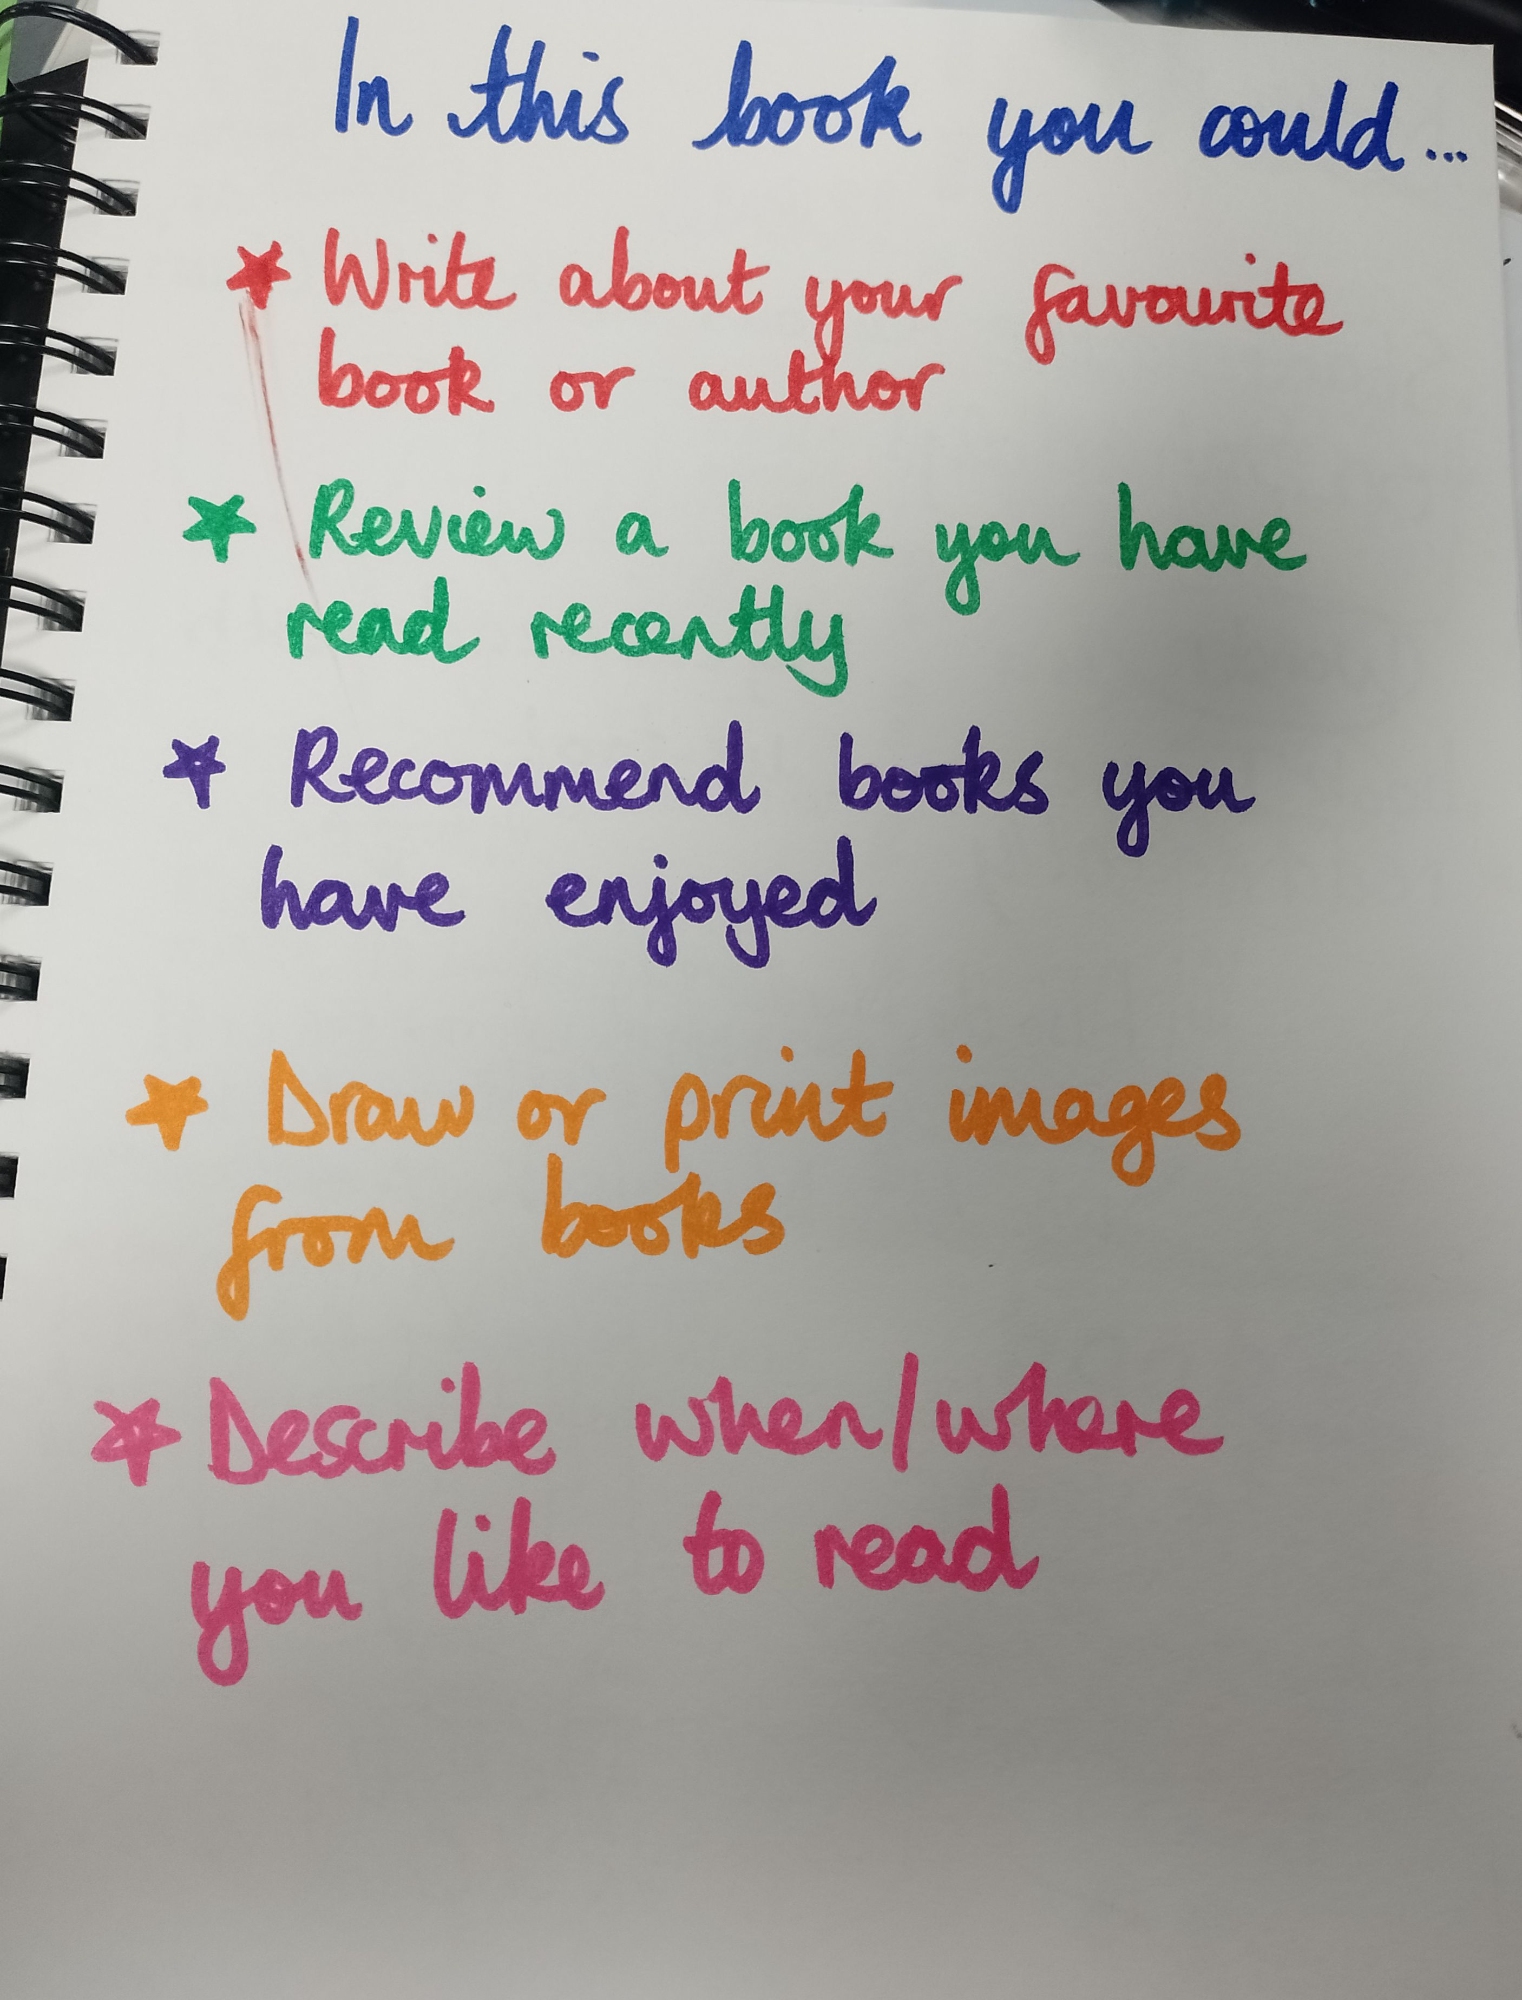 In this book you could...
★ Write about your favourite
book or author
★ Review a book you have
read recently
★ Recommend books you
have enjoyed
★ Draw or print images
from books
★ Describe when/where
you like to read